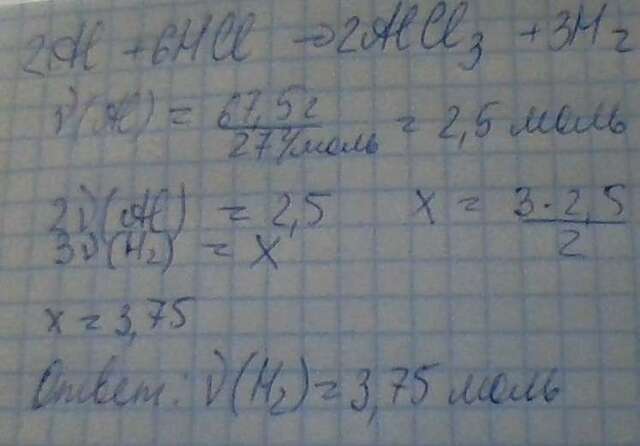 2Al + 6HCl → 2AlCl₃ + 3H₂
ν(Al) = 67,5г / 27г/моль = 2,5 моль
2ν(Al) = 2,5 x = 3·2,5 / 2
3ν(H₂) = x
x = 3,75
Ответ: ν(H₂) = 3,75 моль